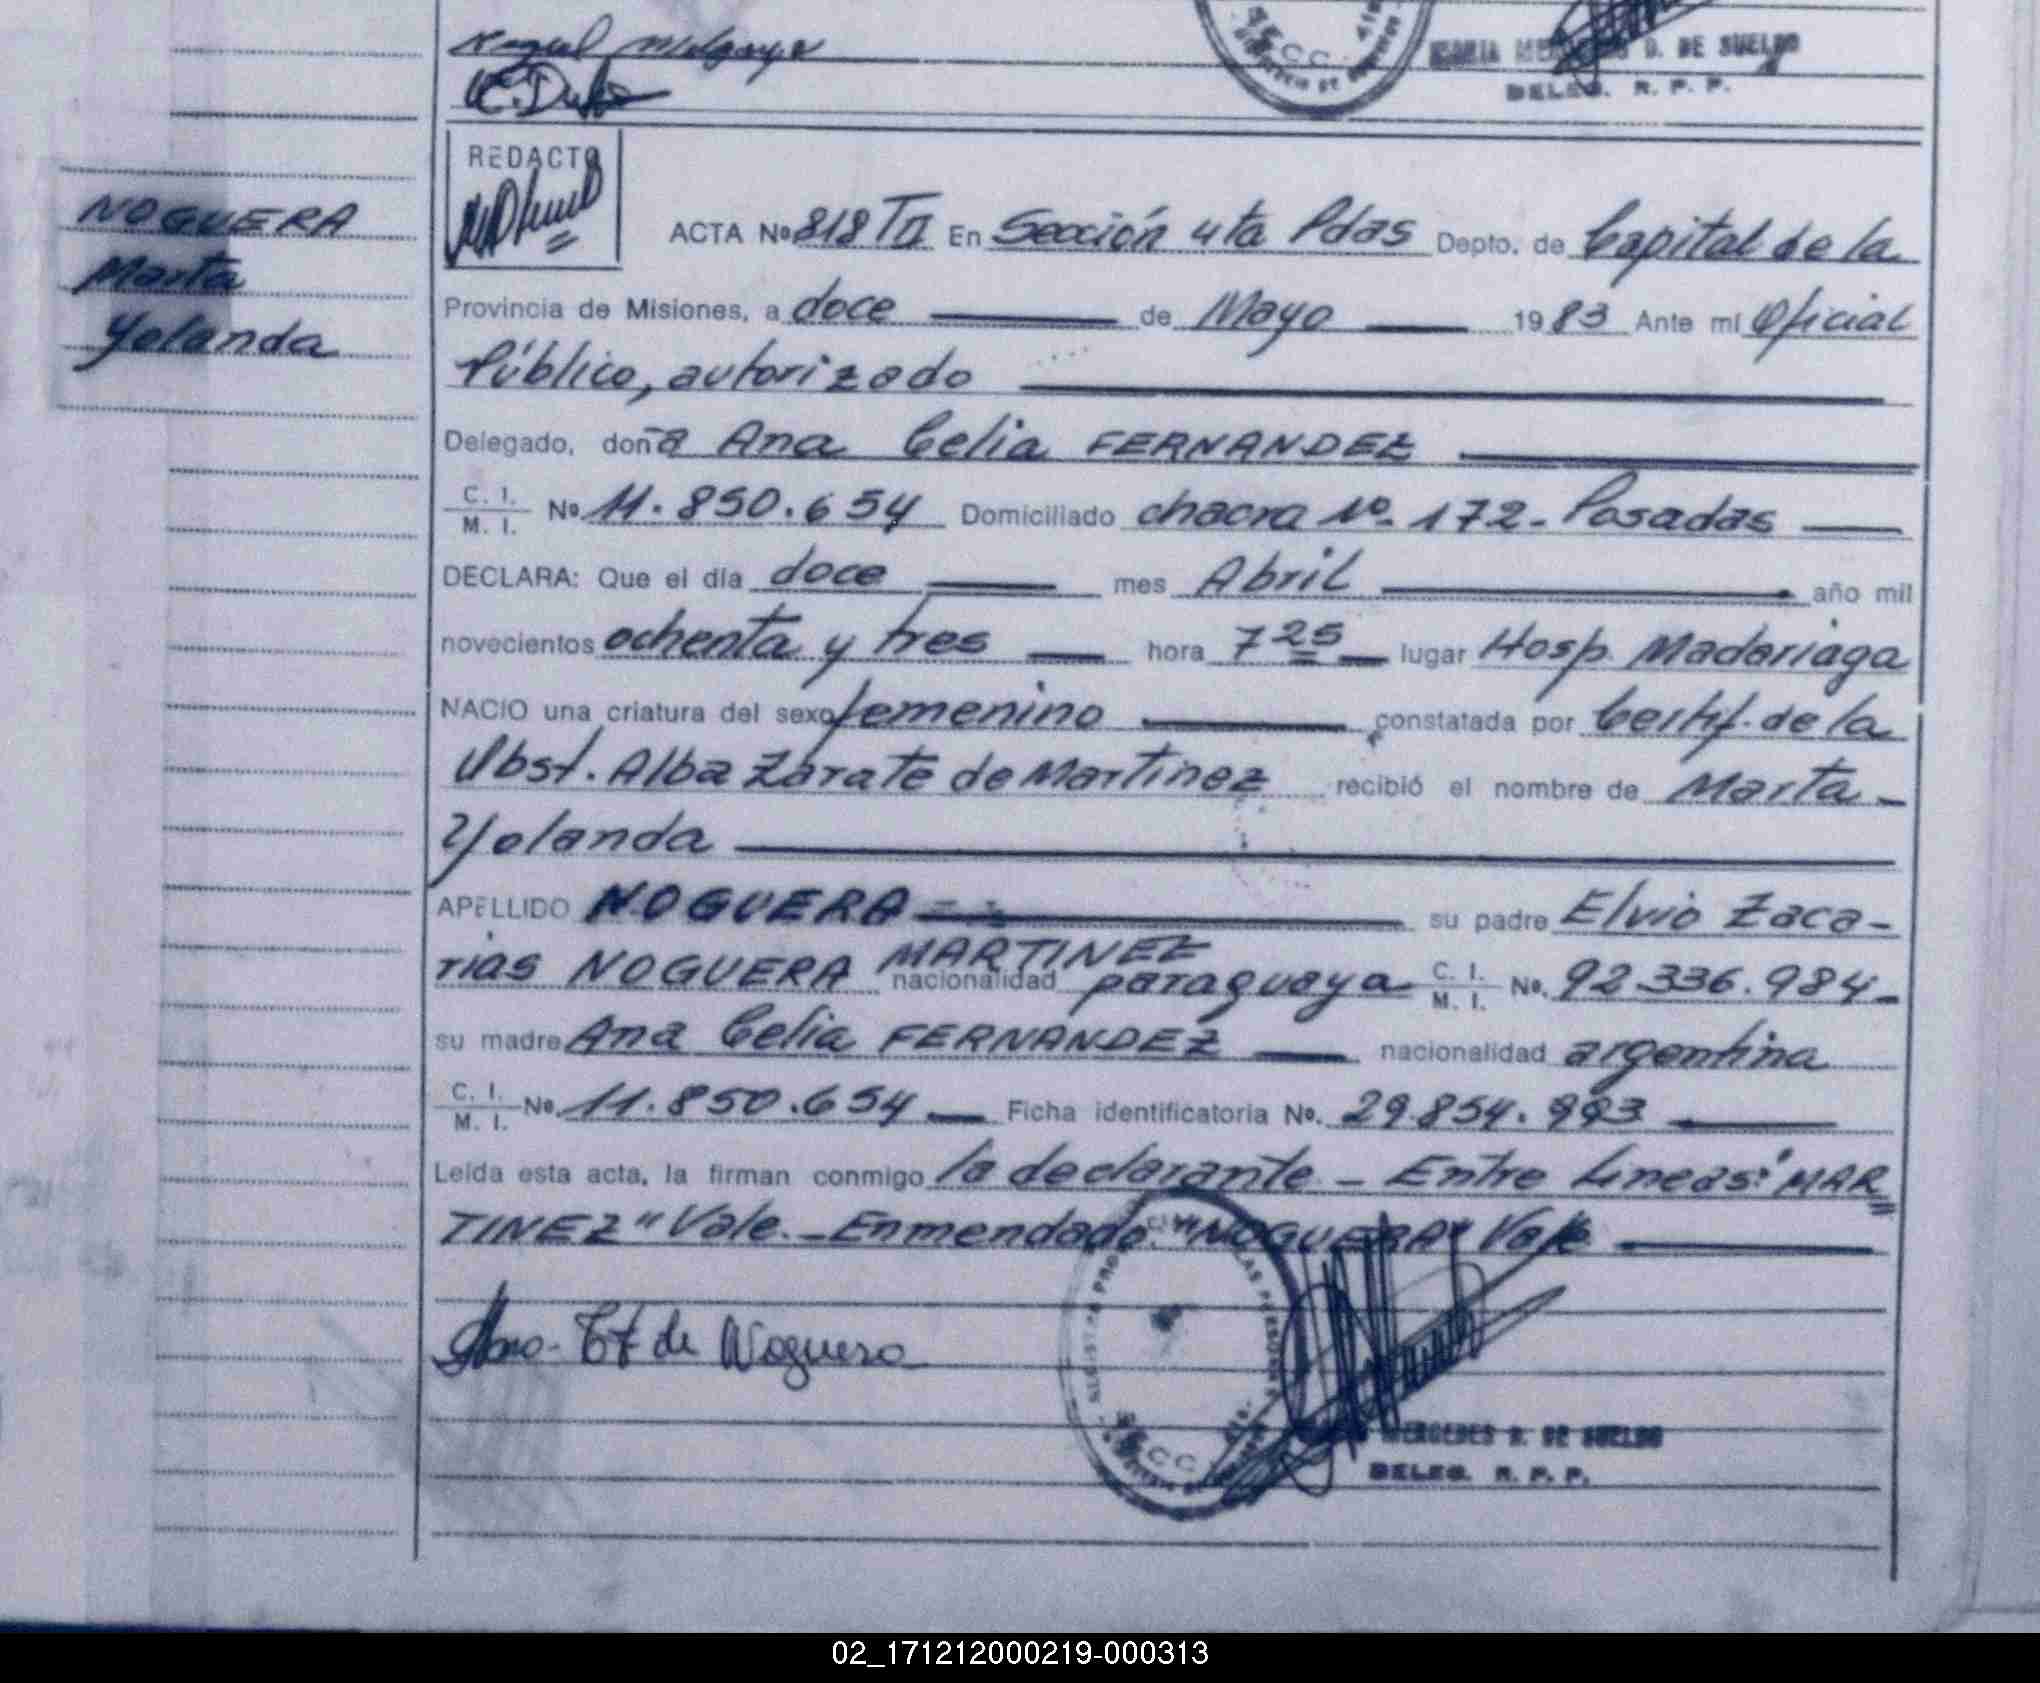 MARIA MERCEDES D. DE SUELDO
DELEG. R. P. P.
REDACTO
NOGUERA
Marta
Yolanda
ACTA Nº 818 TII En Sección 4ta Pdas Depto. de Capital de la
Provincia de Misiones, a doce de Mayo 1983 Ante mí Oficial
Público, autorizado
Delegado, doña Ana Celia FERNANDEZ
C. I. / M. I. Nº 11.850.654 Domiciliado chacra Nº. 172 - Posadas
DECLARA: Que el día doce mes Abril año mil
novecientos ochenta y tres hora 7 25 lugar Hosp. Madariaga
NACIO una criatura del sexo femenino constatada por Certif. de la
Obst. Alba Zarate de Martinez recibió el nombre de Marta
Yolanda
APELLIDO NOGUERA su padre Elvio Zaca-
rias NOGUERA MARTINEZ nacionalidad paraguaya C. I. / M. I. Nº. 92.336.984-
su madre Ana Celia FERNANDEZ nacionalidad argentina
C. I. / M. I. Nº. 11.850.654 Ficha identificatoria Nº. 29.854.993
Leída esta acta, la firman conmigo la declarante - Entre Lineas: "MAR
TINEZ" Vale. - Enmendado: "NOGUERA" Vale
de Noguera
MERCEDES D. DE SUELDO
DELEG. R. P. P.
02_171212000219-000313